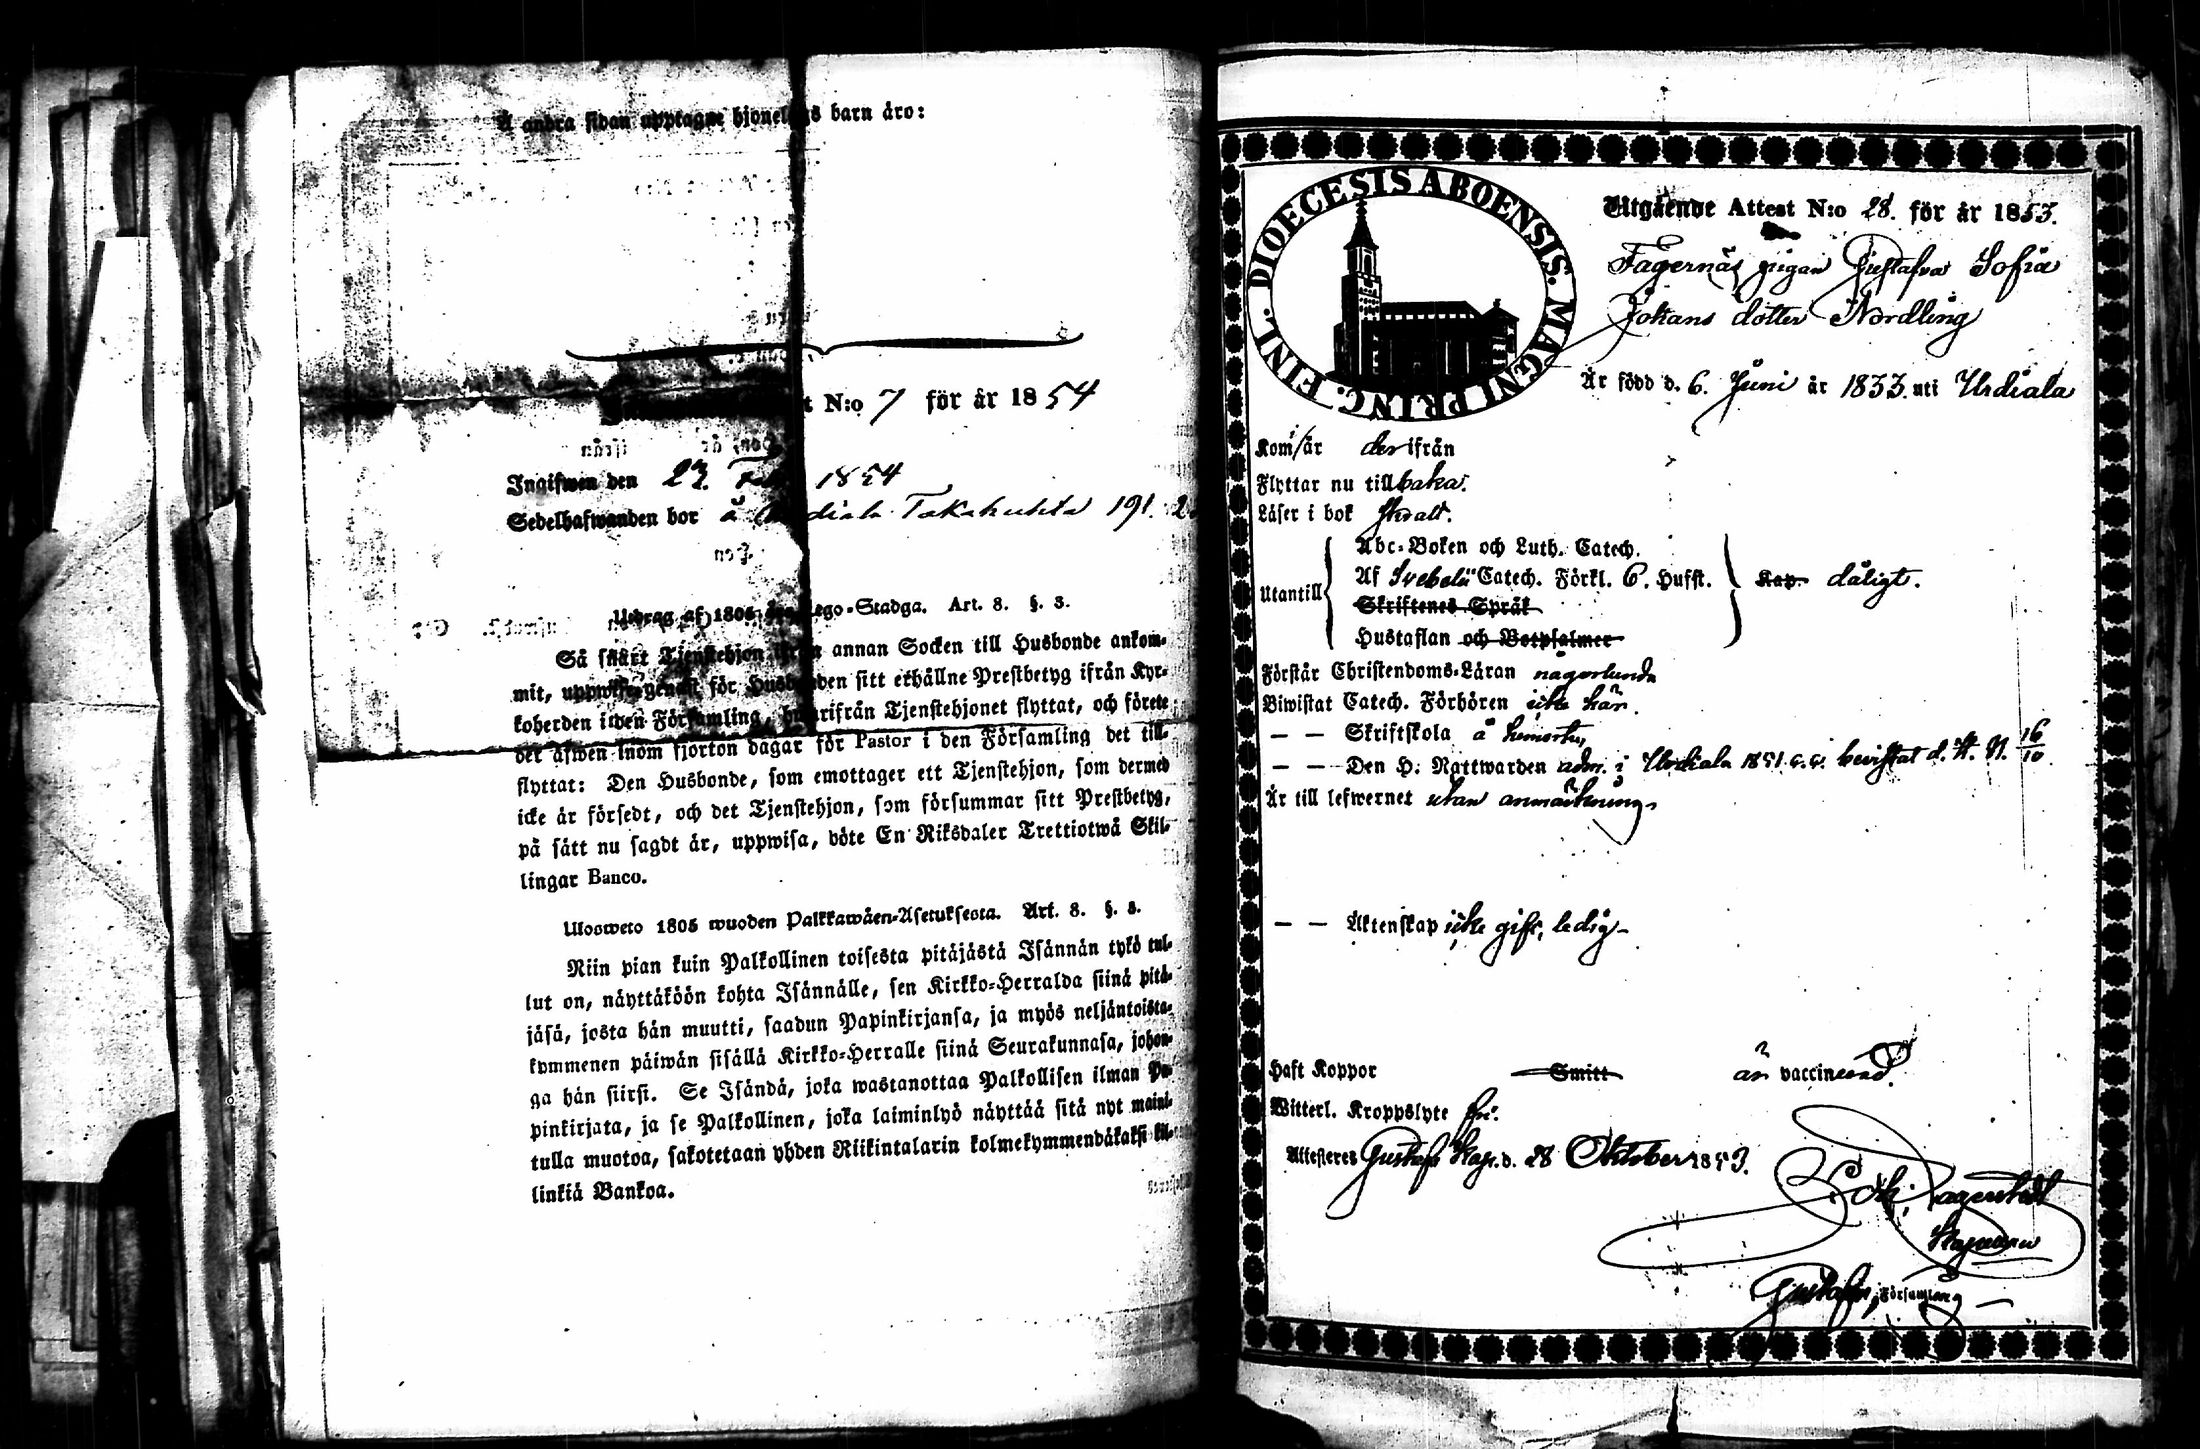 Å andra sidan upptagne hjonelags barn äro:
t N:o 7 för år 1854
Ingifwen den 23. Feb. 1854
Sedelhafwanden bor å Urdiala Takahuhta 191.
Utdrag af 1805 års Lego-Stadga. Art. 8. §. 3.
Så snart Tjenstehjon ifrån annan Socken till Husbonde ankom-
mit, uppwise genast för Husbonden sitt erhållne Prestbetyg ifrån Kyr-
koherden i den Församling, hwarifrån Tjenstehjonet flyttat, och förete
det äfwen inom fjorton dagar för Pastor i den Församling det till-
flyttat: Den Husbonde, som emottager ett Tjenstehjon, som dermed
icke är försedt, och det Tjenstehjon, som försummar sitt Prestbetyg,
på sätt nu sagdt är, uppwisa, böte En Riksdaler Trettiotwå Skil-
lingar Banco.
Ulosweto 1805 wuoden Palkkawäen-Asetuksesta. Art. 8. §. 3.
Niin pian kuin Palkollinen toisesta pitäjästä Isännän tykö tul-
lut on, näyttäköön kohta Isännälle, sen Kirkko-Herralda siinä pitä-
jäsä, josta hän muutti, saadun Papinkirjansa, ja myös neljäntoista-
kymmenen päiwän sisällä Kirkko-Herralle siinä Seurakunnasa, johon-
ga hän siirsi. Se Isändä, joka wastanottaa Palkollisen ilman Pa-
pinkirjata, ja se Palkollinen, joka laiminlyö näyttää sitä nyt maini-
tulla muotoa, sakotetaan yhden Riikintalarin kolmekymmendäkaksi kil-
linkiä Bankoa.
DIOECESIS ABOENSIS. MAGNI PRINC. FINL.
Utgående Attest N:o 28. för år 1853.
Fagernäs pigan Gustafva Sofia
Johans dotter Nordling
Är född d. 6. Juni år 1833. uti Urdiala
Kom/är derifrån
Flyttar nu tillbaka.
Läser i bok svalt.
Utantill
Abc-Boken och Luth. Catech.
Af Svebelii Catech. Förkl. 6. Hufst. Kap. dåligt.
Skriftenes Språk
Hustaflan och Botpsalmer
Förstår Christendoms-Läran någorlunda
Biwistat Catech. Förhören icke här.
— — Skriftskola å hemorten,
— — Den H. Nattwarden adm. i Urdiala 1851. bevistat d. H. N. 16/10
Är till lefwernet utan anmärkning.
— — Äktenskap icke gift, ledig
Haft Koppor Smitt är vaccinerad.
Witterl. Kroppslyte fri.
Attesteres Gustafs Kap. d. 28 Oktober 1853.
Lagerstedt
Kapellan
Gustafs Församling